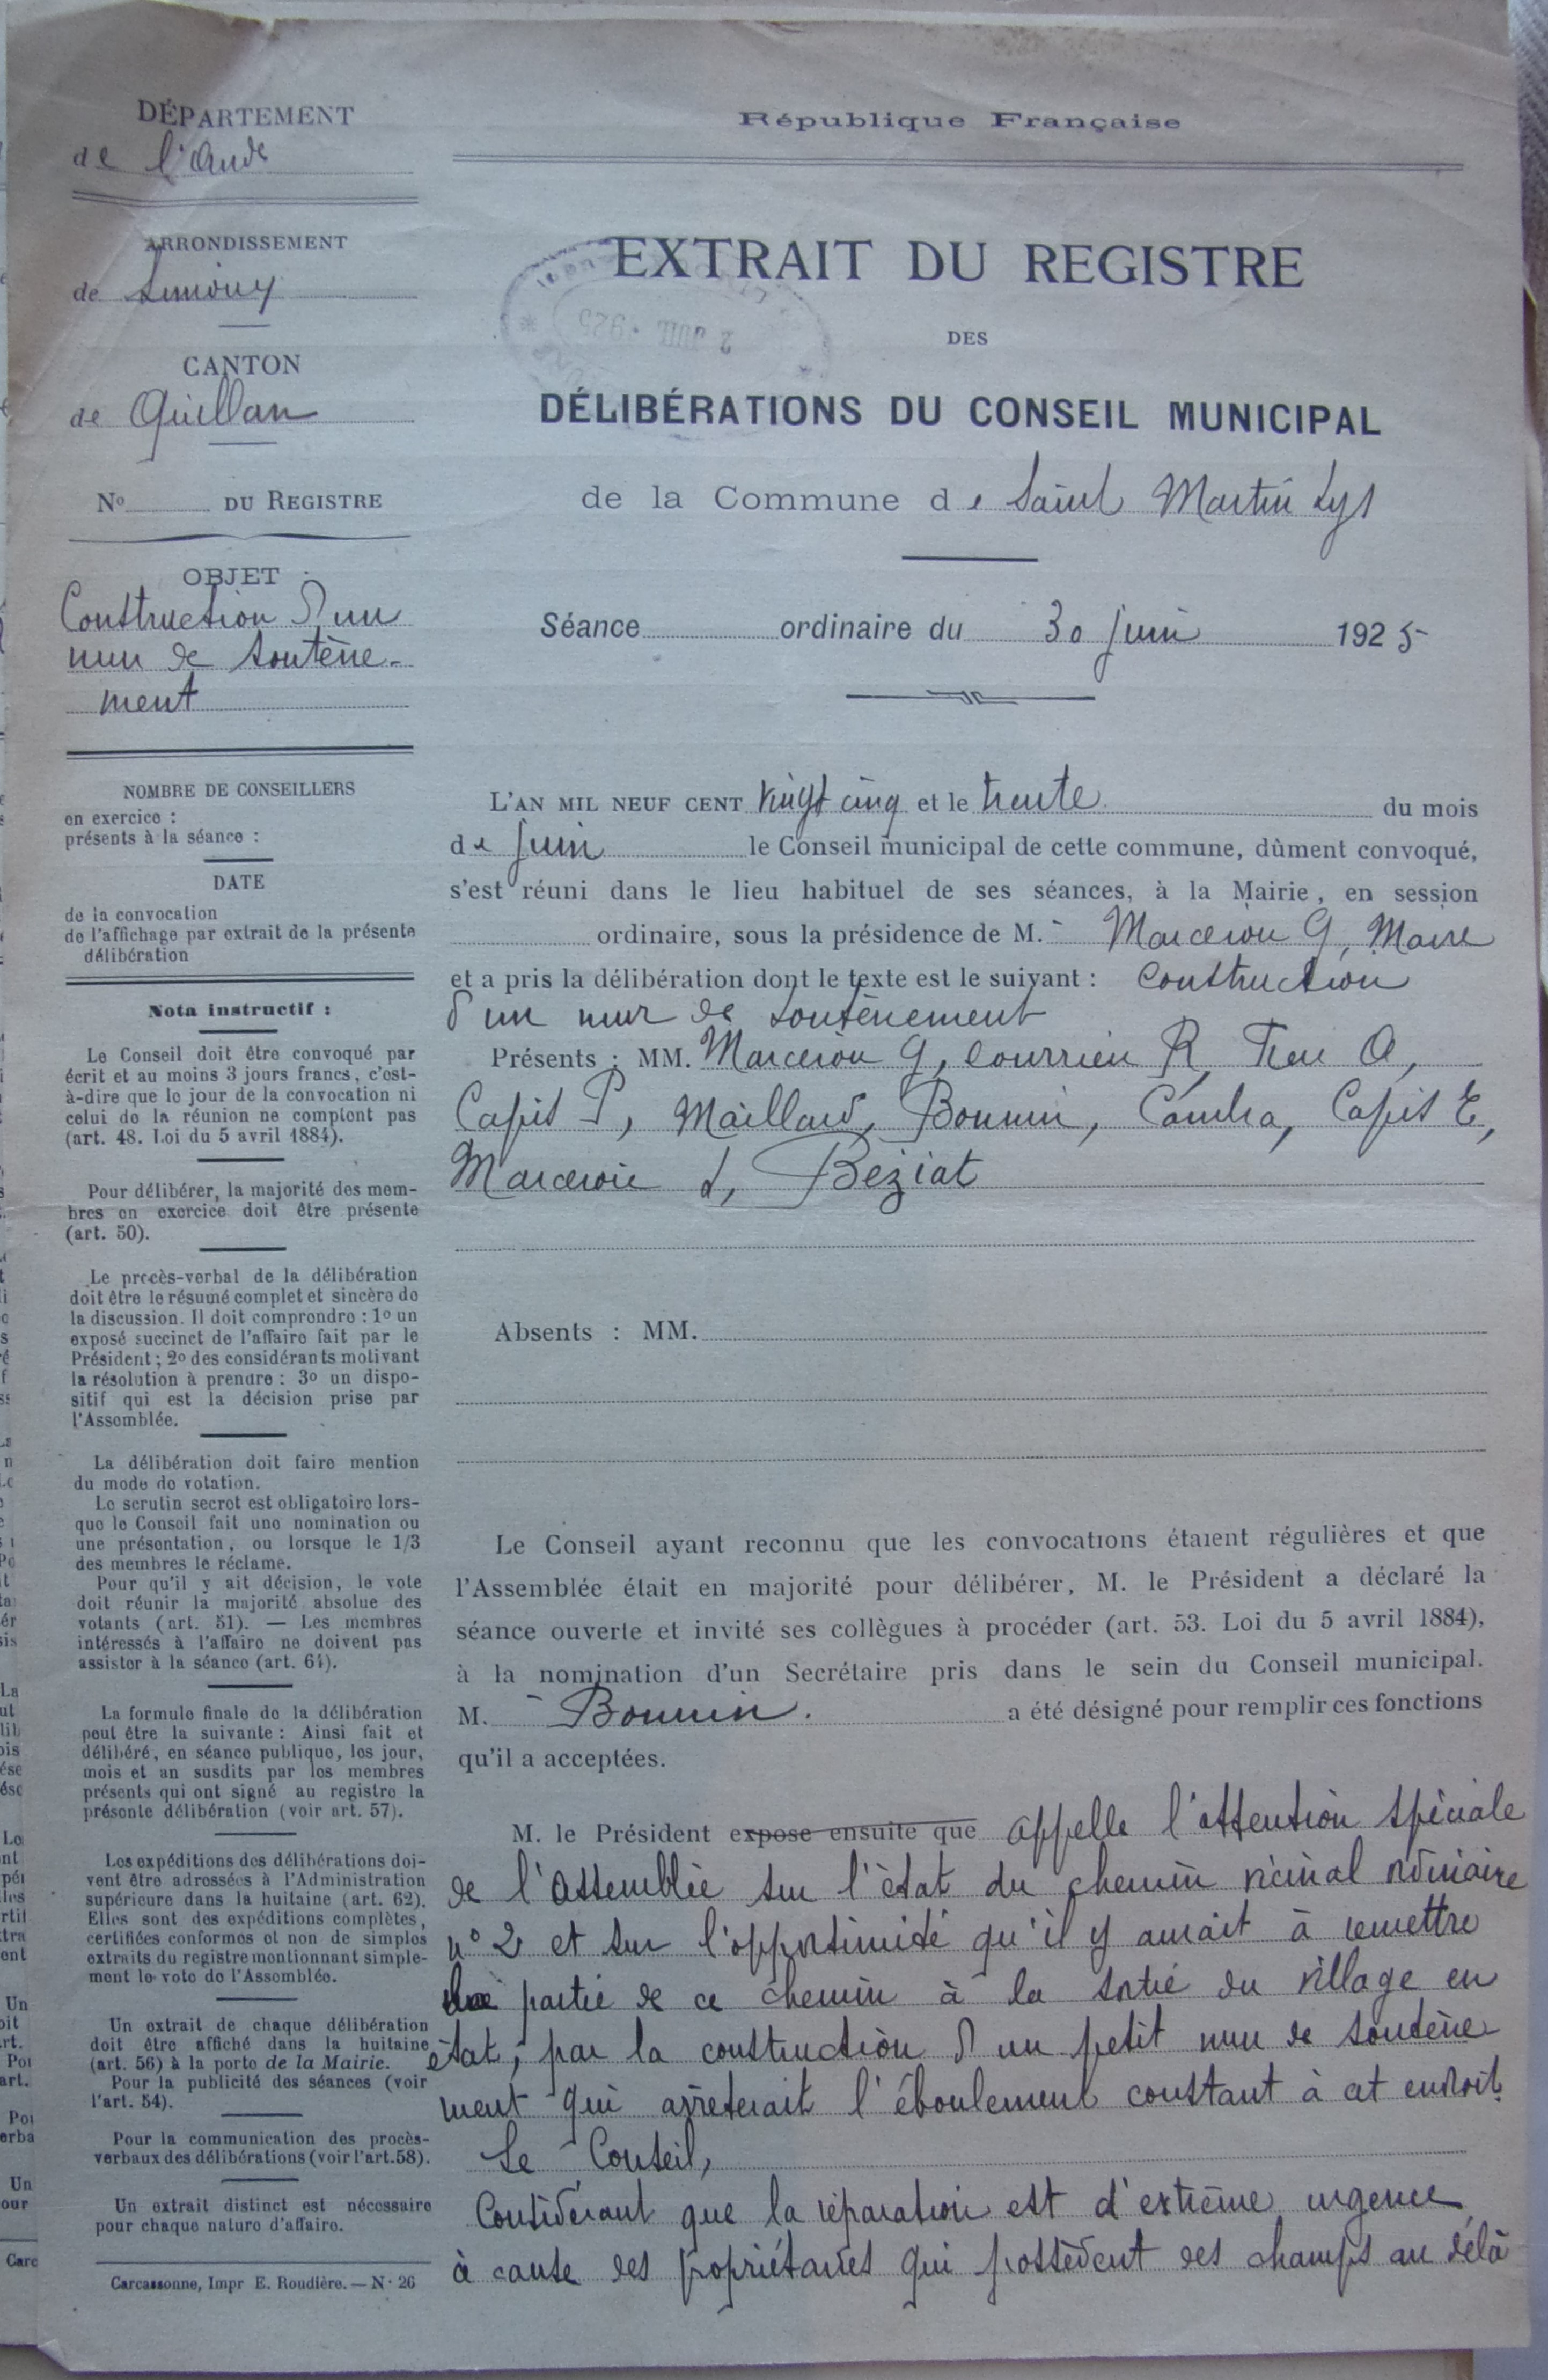 DÉPARTEMENT
de l'Aude
ARRONDISSEMENT
de Limoux
CANTON
de Quillan
No DU REGISTRE
OBJET :
Construction d'un
mur de soutène-
ment
NOMBRE DE CONSEILLERS
en exercice :
présents à la séance :
DATE
de la convocation
de l'affichage par extrait de la présente
délibération
Nota instructif :
Le Conseil doit être convoqué par
écrit et au moins 3 jours francs, c'est-
à-dire que le jour de la convocation ni
celui de la réunion ne comptent pas
(art. 48. Loi du 5 avril 1884).
Pour délibérer, la majorité des mem-
bres en exercice doit être présente
(art. 50).
Le procès-verbal de la délibération
doit être le résumé complet et sincère de
la discussion. Il doit comprendre : 1o un
exposé succinct de l'affaire fait par le
Président ; 2o des considérants motivant
la résolution à prendre : 3o un dispo-
sitif qui est la décision prise par
l'Assemblée.
La délibération doit faire mention
du mode de votation.
Le scrutin secret est obligatoire lors-
que le Conseil fait une nomination ou
une présentation, ou lorsque le 1/3
des membres le réclame.
Pour qu'il y ait décision, le vote
doit réunir la majorité absolue des
votants (art. 51). — Les membres
intéressés à l'affaire ne doivent pas
assister à la séance (art. 64).
La formule finale de la délibération
peut être la suivante : Ainsi fait et
délibéré, en séance publique, les jour,
mois et an susdits par les membres
présents qui ont signé au registre la
présente délibération (voir art. 57).
Les expéditions des délibérations doi-
vent être adressées à l'Administration
supérieure dans la huitaine (art. 62).
Elles sont des expéditions complètes,
certifiées conformes et non de simples
extraits du registre mentionnant simple-
ment le vote de l'Assemblée.
Un extrait de chaque délibération
doit être affiché dans la huitaine
(art. 56) à la porte de la Mairie.
Pour la publicité des séances (voir
l'art. 54).
Pour la communication des procès-
verbaux des délibérations (voir l'art. 58).
Un extrait distinct est nécessaire
pour chaque nature d'affaire.
Carcassonne, Impr E. Roudière. — N· 26
République Française
EXTRAIT DU REGISTRE
DES
DÉLIBÉRATIONS DU CONSEIL MUNICIPAL
de la Commune de Saint Martin Lys
Séance ordinaire du 30 juin 1925
L'AN MIL NEUF CENT vingt cinq et le trente du mois
de juin le Conseil municipal de cette commune, dûment convoqué,
s'est réuni dans le lieu habituel de ses séances, à la Mairie, en session
ordinaire, sous la présidence de M. Marcerou G, Maire
et a pris la délibération dont le texte est le suivant : Construction
d'un mur de soutènement
Présents : MM. Marcerou G, Courrieu R,
Capit P, Maillard, Bounin, Cambra, Capit E,
Marcerou Béziat
Absents : MM.
Le Conseil ayant reconnu que les convocations étaient régulières et que
l'Assemblée était en majorité pour délibérer, M. le Président a déclaré la
séance ouverte et invité ses collègues à procéder (art. 53. Loi du 5 avril 1884),
à la nomination d'un Secrétaire pris dans le sein du Conseil municipal.
M. Bounin. a été désigné pour remplir ces fonctions
qu'il a acceptées.
M. le Président expose ensuite que appelle l'attention spéciale
de l'Assemblée sur l'état du chemin vicinal ordinaire
n° 2 et sur l'opportunité qu'il y aurait à remettre
partie de ce chemin à la sortie du village en
état, par la construction d'un petit mur de soutène
ment qui arrêterait l'éboulement constant à cet endroit.
Le Conseil,
Considérant que la réparation est d'extrême urgence
à cause des propriétaires qui possèdent des champs au délà